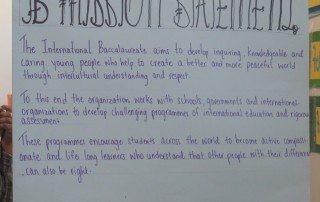 IB MISSION STATEMENT
The International Baccalaureate aims to develop inquiring, knowledgeable and
caring young people who help to create a better and more peaceful world
through intercultural understanding and respect.
To this end the organization works with schools, governments and international
organizations to develop challenging programmes of international education and rigorous
assessment
These programmes encourage students across the world to become active compassi-
onate and life long learners who understand that other people with their difference
can also be right.